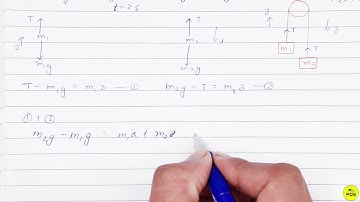 t = 2s
T
T
m1
m2
m1g
m2g
T
T
m1
m2
T - m1g = m1a — ①
m2g - T = m2a — ②
① + ②
m2g - m1g = m1a + m2a
PDS